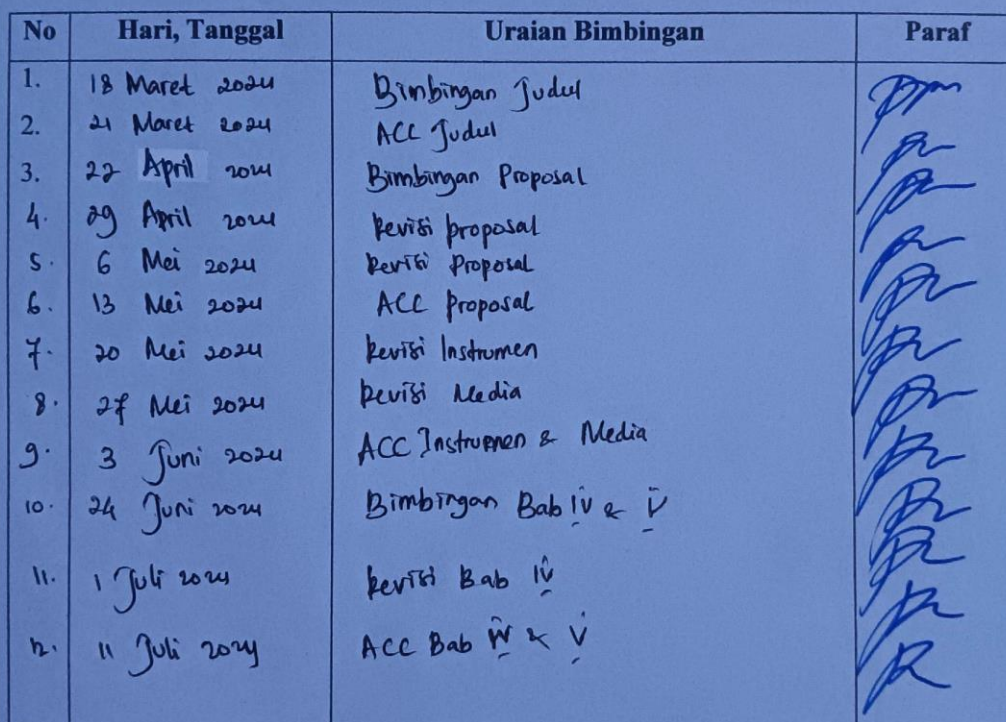 No Hari, Tanggal Uraian Bimbingan Paraf
1. 18 Maret 2024 Bimbingan Judul
2. 21 Maret 2024 ACC Judul
3. 22 April 2024 Bimbingan Proposal
4. 29 April 2024 Revisi proposal
5. 6 Mei 2024 Revisi Proposal
6. 13 Mei 2024 ACC proposal
7. 20 Mei 2024 Revisi Instrumen
8. 27 Mei 2024 Revisi Media
9. 3 Juni 2024 ACC Instrumen & Media
10. 24 Juni 2024 Bimbingan Bab IV & V
11. 1 Juli 2024 Revisi Bab IV
12. 11 Juli 2024 ACC Bab IV & V